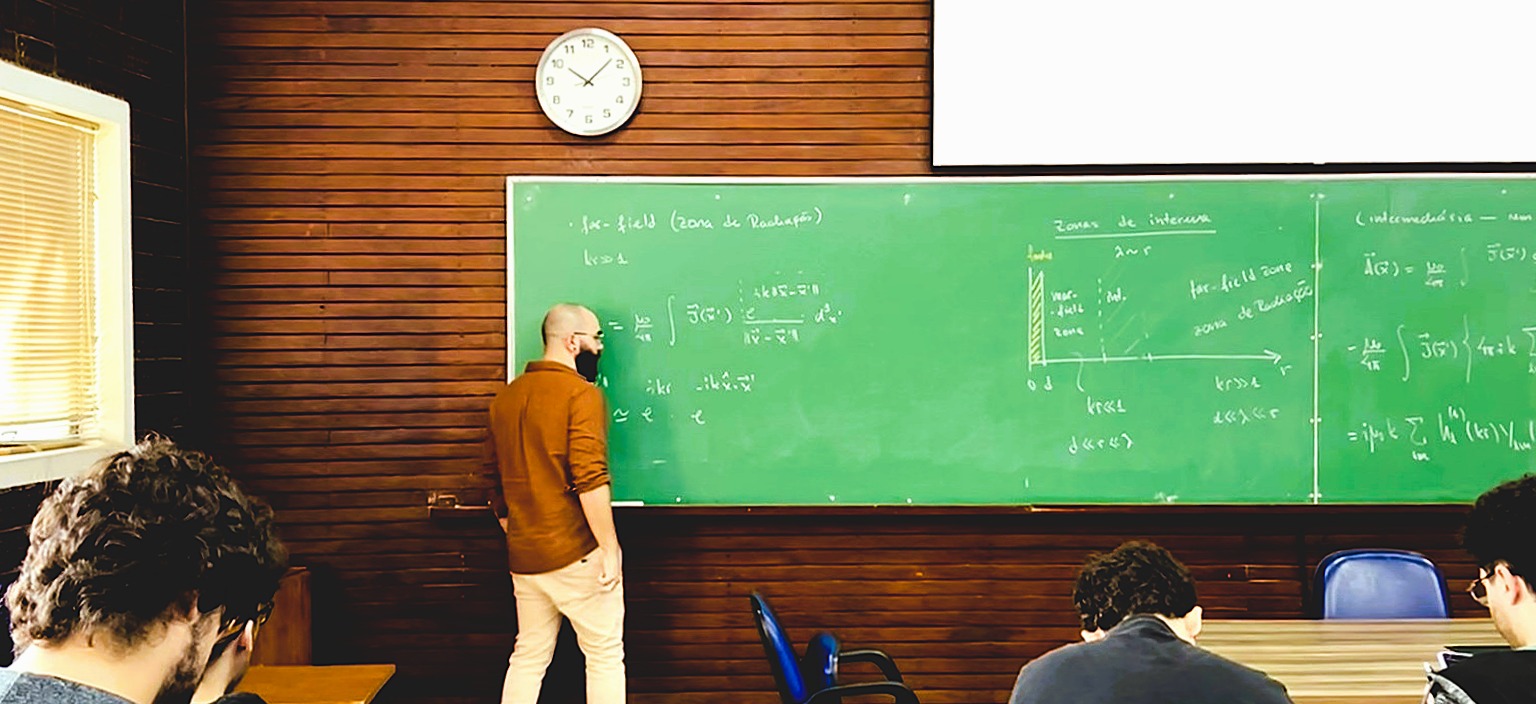 12
11 1
10 2
9 3
8 4
7 5
6
· far-field (zona de Radiação)
kr>>1
= μ₀/4π ∫ J⃗(x⃗') e^{ik‖x⃗-x⃗'‖}/‖x⃗-x⃗'‖ d³x'
≃ e^{ikr} · e^{-ik x̂·x⃗'}
Zonas de interesse
λ~r
near-
field
zone
int.
far-field zone
zona de Radiação
0 d r
kr<<1
d<<r<<λ
kr>>1
d<<λ<<r
(intermediária —
A⃗(x⃗) = μ₀/4π ∫ J⃗(x⃗')
μ₀/4π ∫ J⃗(x⃗') { 4π i k Σ
= iμ₀k Σ h_l^{(1)}(kr) Y_lm